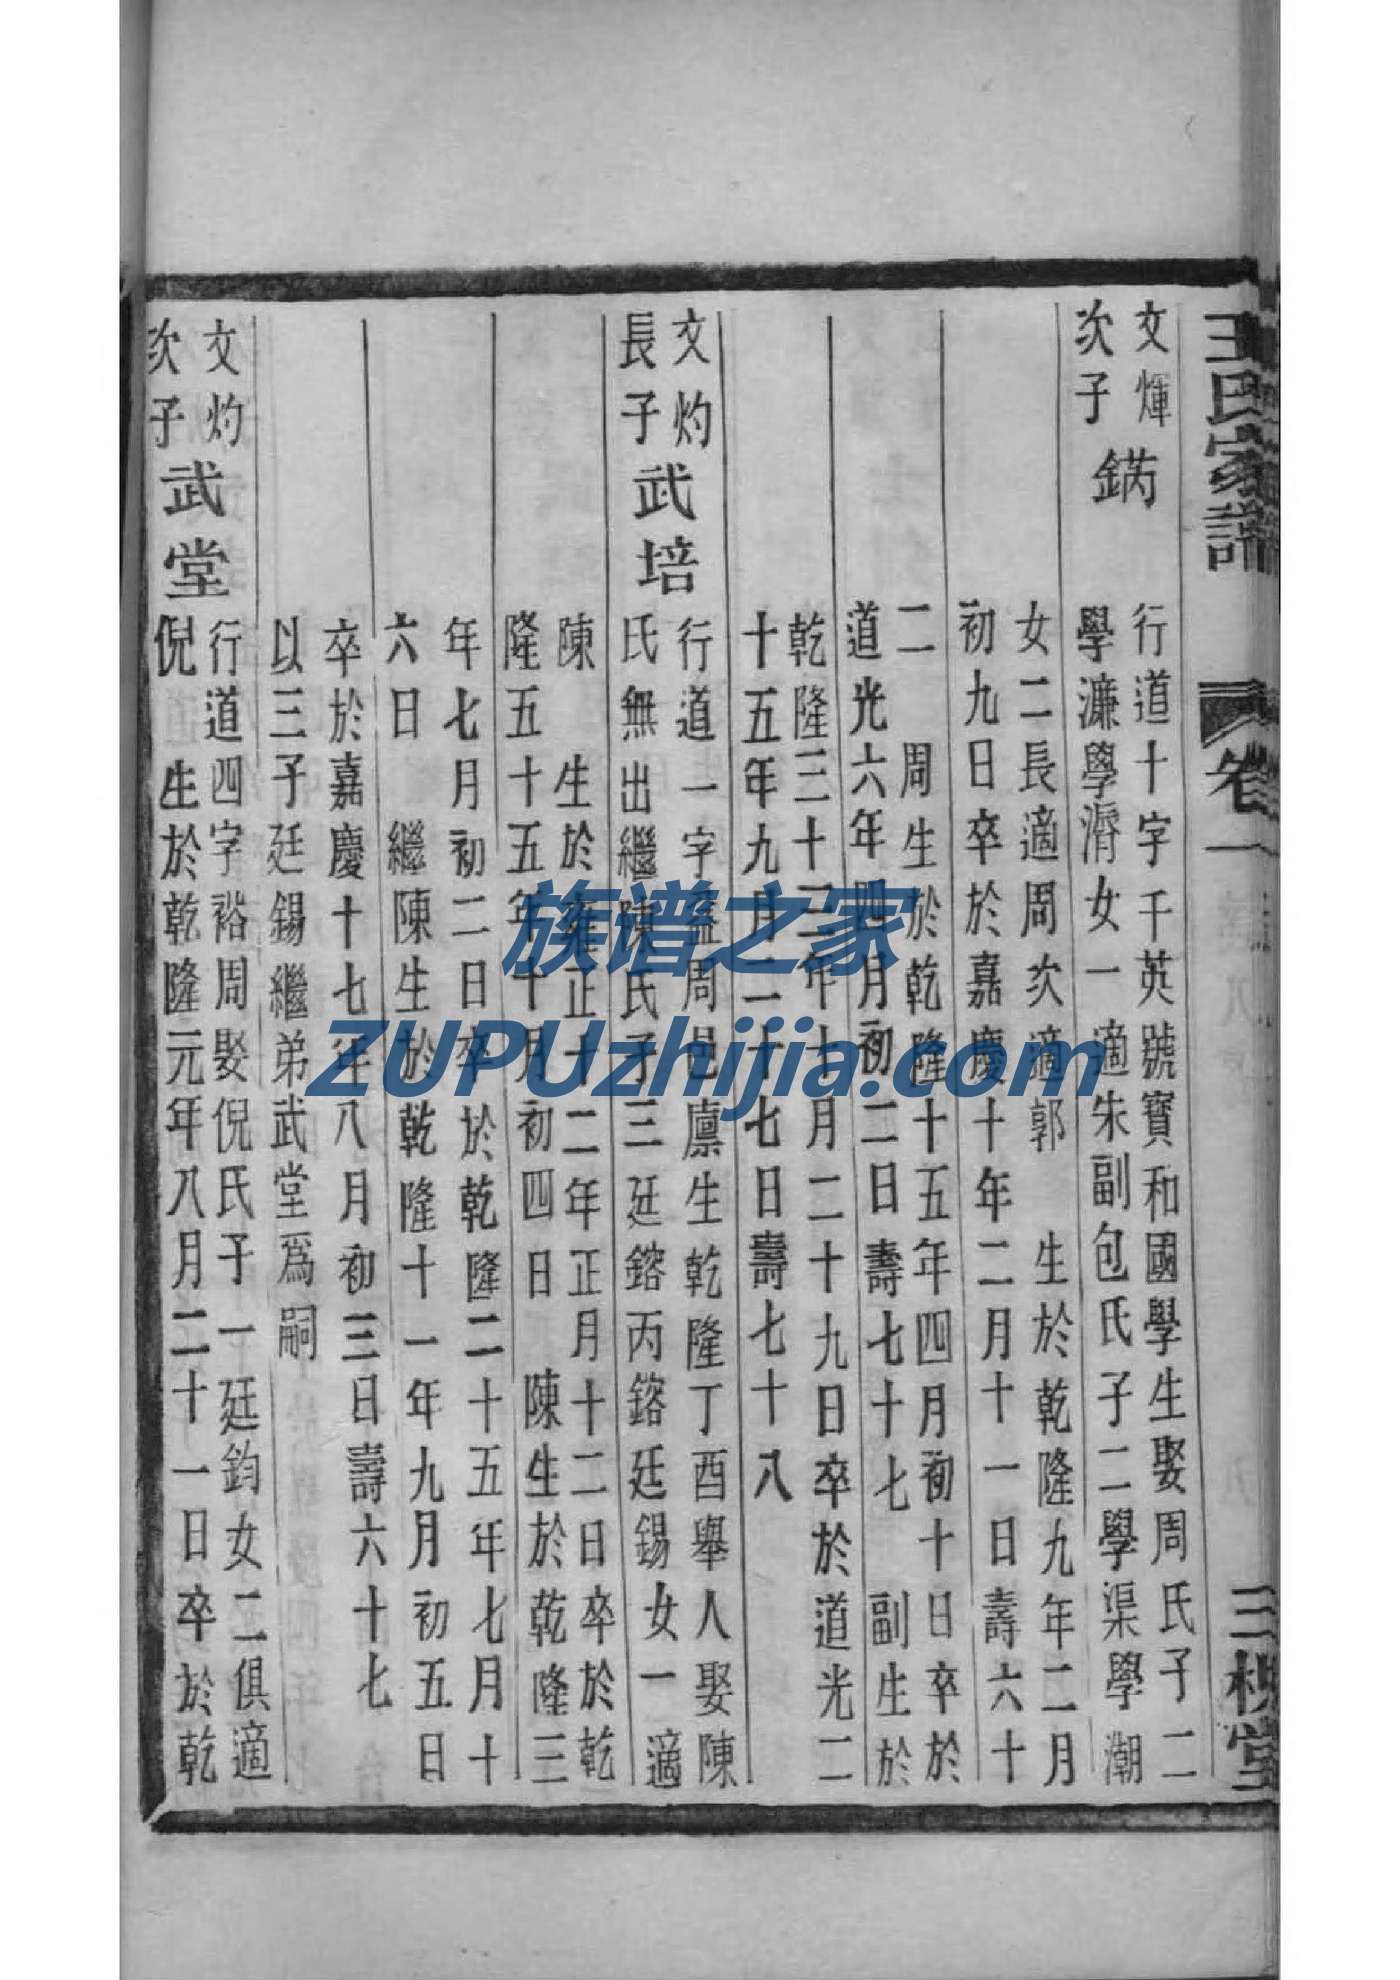 王氏家譜
卷一
三槐堂
文煇
次子
鎷
行道十字千英號寶和國學生娶周氏子二
學濂學濟女一適朱副包氏子二學渠學潮
女二長適周次適郭 生於乾隆九年二月
初九日卒於嘉慶十年二月十一日壽六十
二 周生於乾隆十五年四月初十日卒於
道光六年四月初二日壽七十七 副生於
乾隆三十三年十月二十九日卒於道光二
十五年九月二十七日壽七十八
文灼
長子
武培
行道一字盈周邑廩生乾隆丁酉舉人娶陳
氏無出繼陳氏子三廷鎔丙鎔廷錫女一適
陳 生於雍正十二年正月十二日卒於乾
隆五十五年十月初四日 陳生於乾隆三
年七月初二日卒於乾隆二十五年七月十
六日 繼陳生於乾隆十一年九月初五日
卒於嘉慶十七年八月初三日壽六十七
以三子廷錫繼弟武堂爲嗣
文灼
次子
武堂
行道四字裕周娶倪氏子一廷鈞女二俱適
倪 生於乾隆元年八月二十一日卒於乾
族谱之家
ZUPUzhijia.com